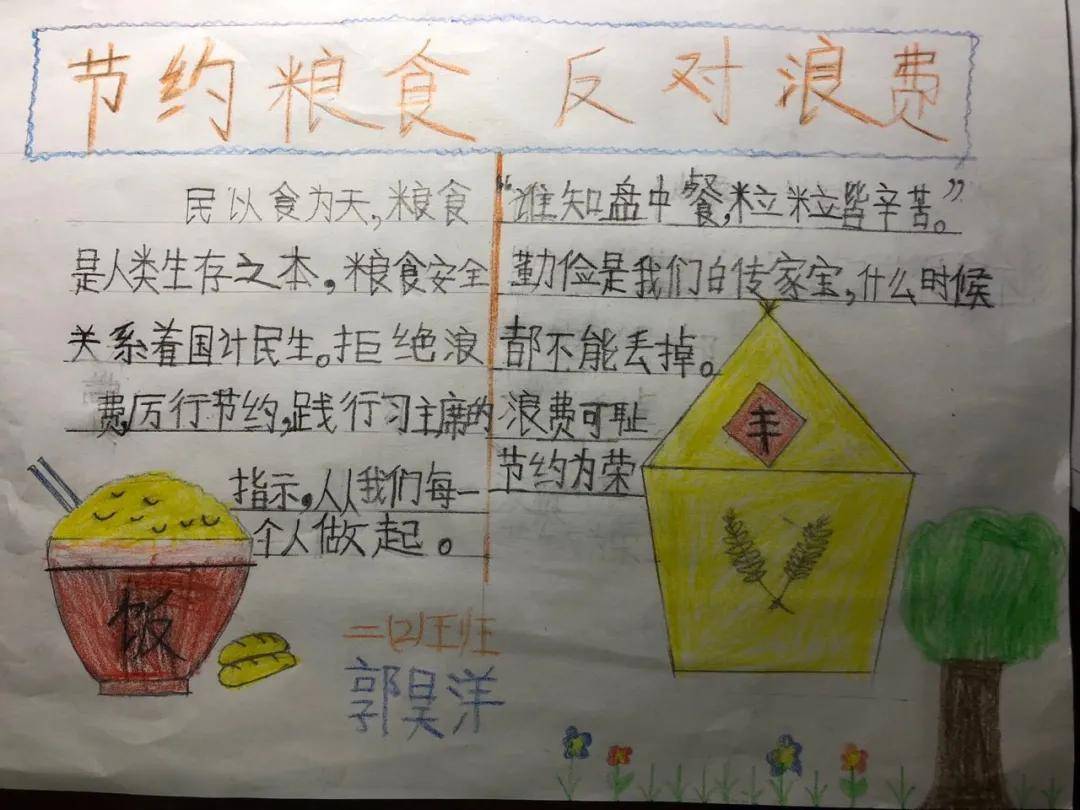 节约粮食 反对浪费
民以食为天,粮食
是人类生存之本,粮食安全
关系着国计民生。拒绝浪
费,厉行节约,践行习主席的
指示,从我们每一
个人做起。
“谁知盘中餐,粒粒皆辛苦。”
勤俭是我们白传家宝,什么时候
都不能丢掉。
浪费可耻
节约为荣
丰
饭
二(2)班
郭昊洋